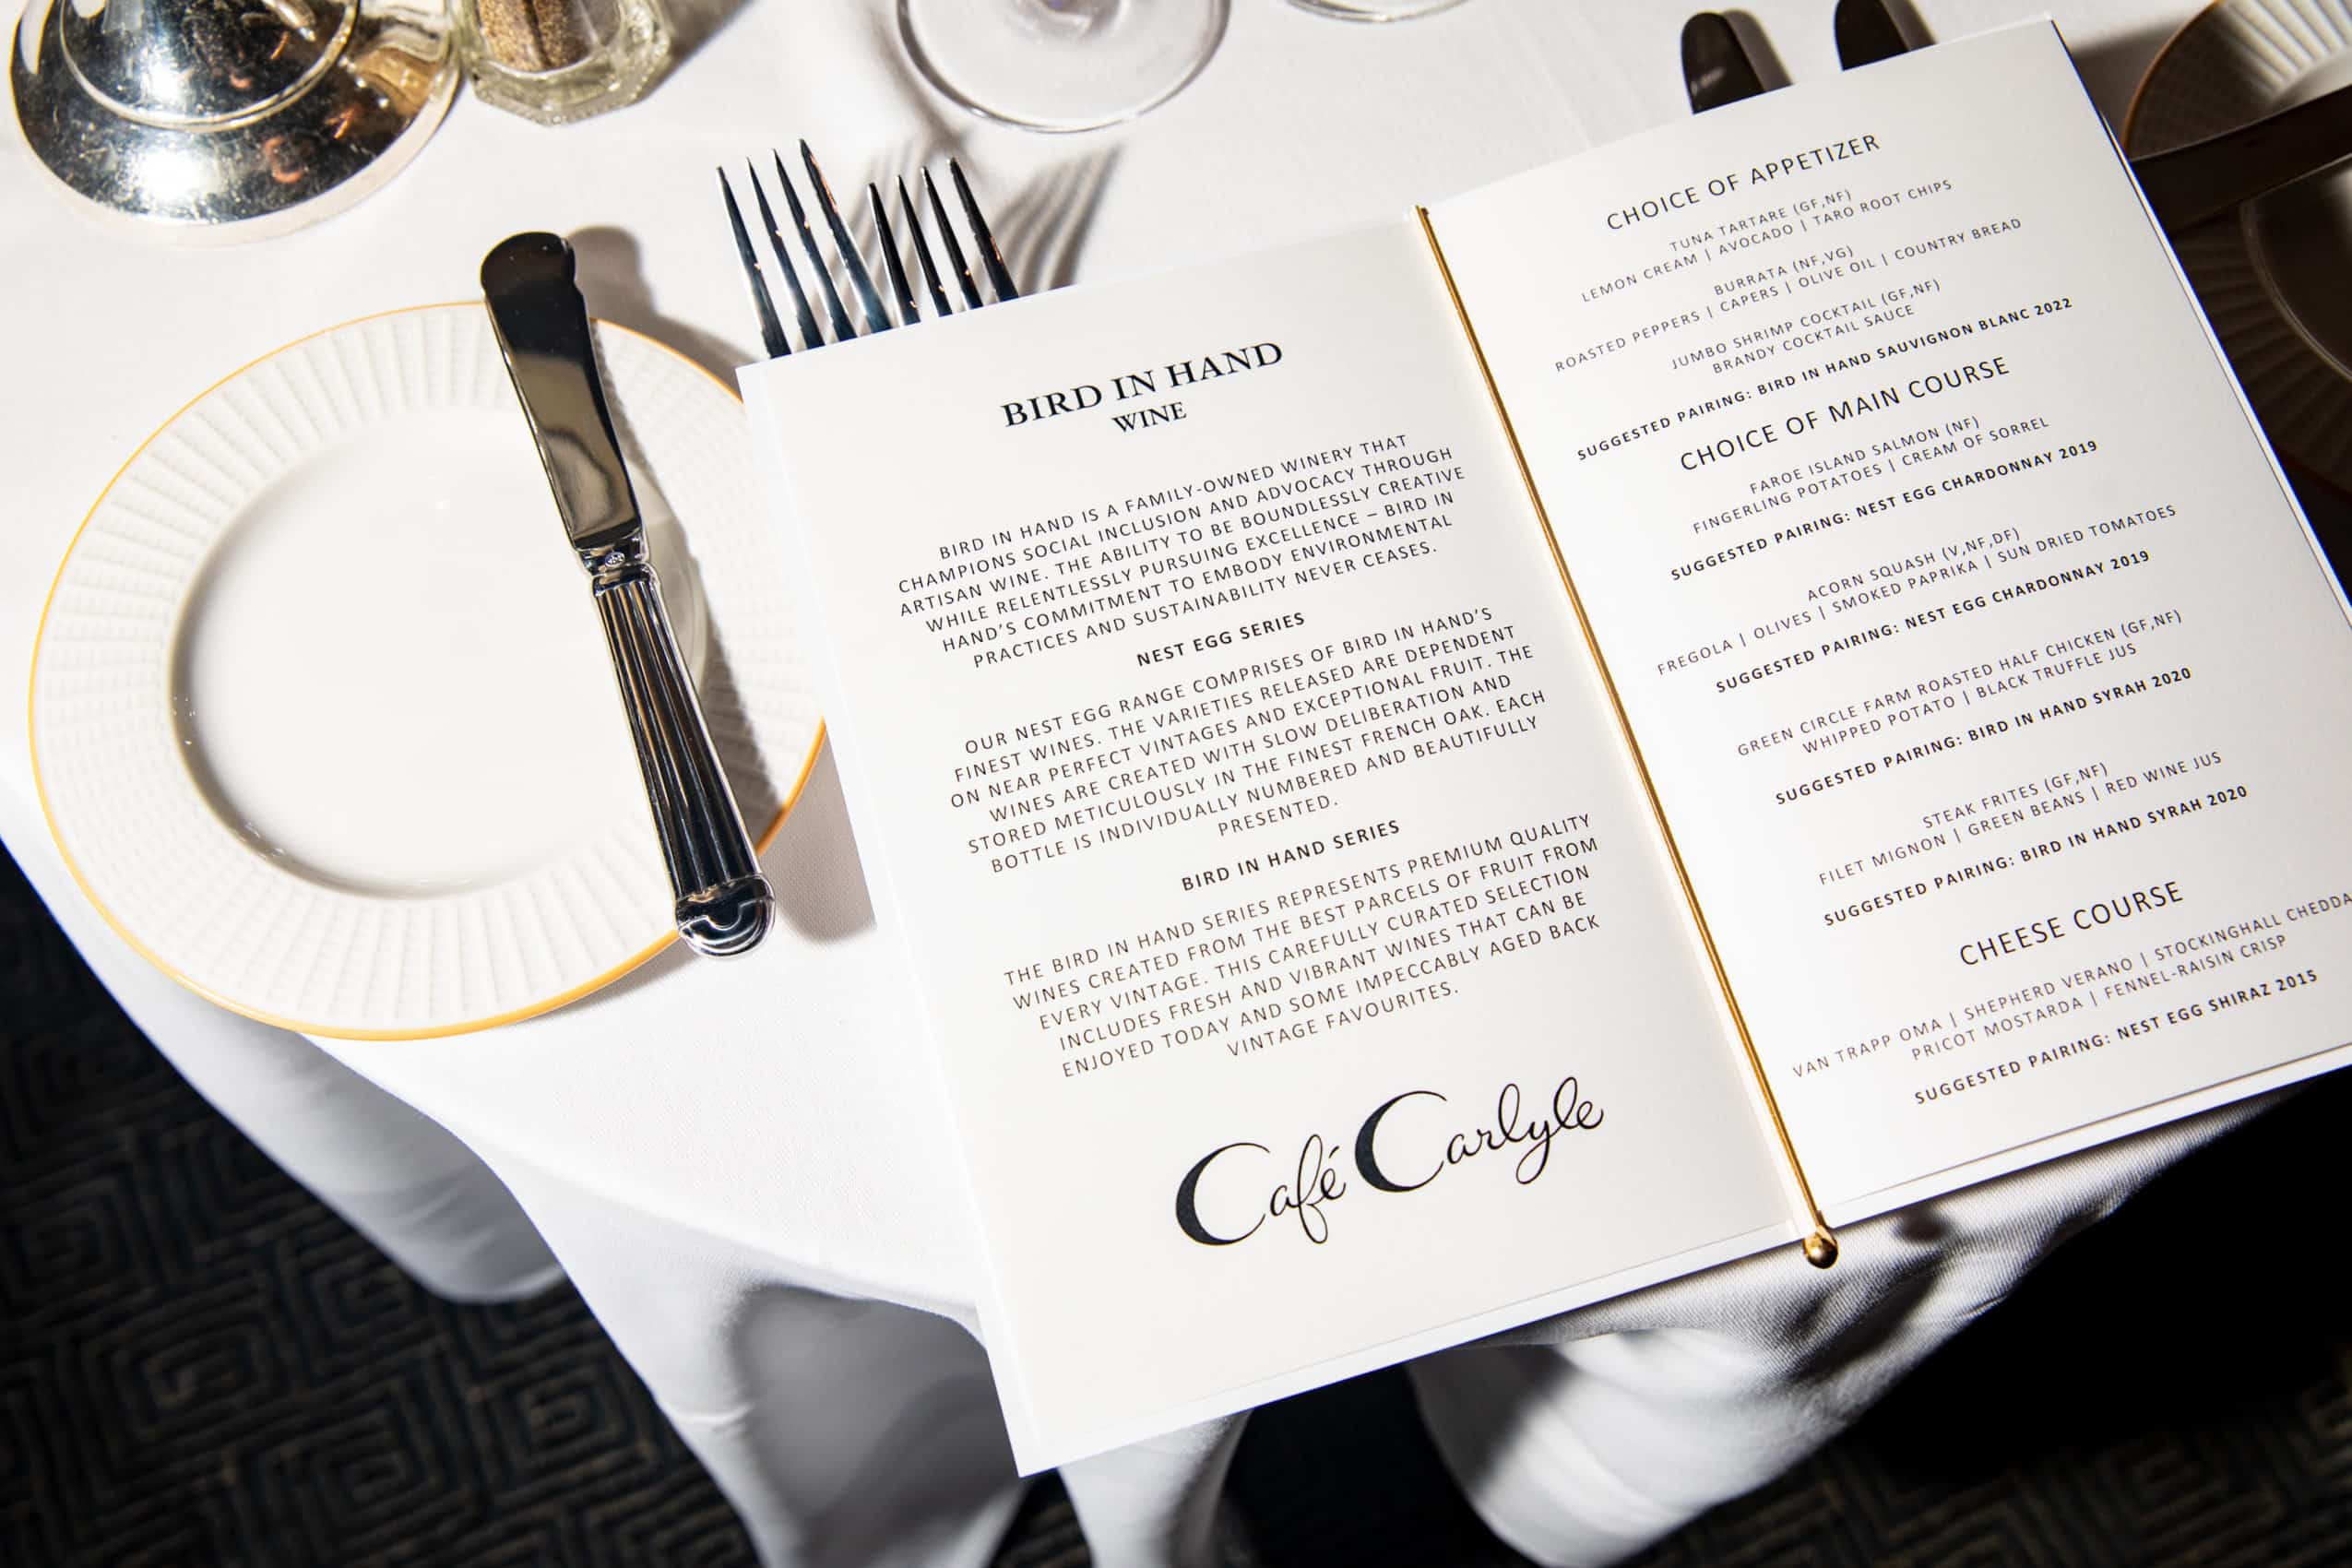 BIRD IN HAND
WINE
BIRD IN HAND IS A FAMILY-OWNED WINERY THAT
CHAMPIONS SOCIAL INCLUSION AND ADVOCACY THROUGH
ARTISAN WINE. THE ABILITY TO BE BOUNDLESSLY CREATIVE
WHILE RELENTLESSLY PURSUING EXCELLENCE – BIRD IN
HAND'S COMMITMENT TO EMBODY ENVIRONMENTAL
PRACTICES AND SUSTAINABILITY NEVER CEASES.
NEST EGG SERIES
OUR NEST EGG RANGE COMPRISES OF BIRD IN HAND'S
FINEST WINES. THE VARIETIES RELEASED ARE DEPENDENT
ON NEAR PERFECT VINTAGES AND EXCEPTIONAL FRUIT. THE
WINES ARE CREATED WITH SLOW DELIBERATION AND
STORED METICULOUSLY IN THE FINEST FRENCH OAK. EACH
BOTTLE IS INDIVIDUALLY NUMBERED AND BEAUTIFULLY
PRESENTED.
BIRD IN HAND SERIES
THE BIRD IN HAND SERIES REPRESENTS PREMIUM QUALITY
WINES CREATED FROM THE BEST PARCELS OF FRUIT FROM
EVERY VINTAGE. THIS CAREFULLY CURATED SELECTION
INCLUDES FRESH AND VIBRANT WINES THAT CAN BE
ENJOYED TODAY AND SOME IMPECCABLY AGED BACK
VINTAGE FAVOURITES.
Café Carlyle
CHOICE OF APPETIZER
TUNA TARTARE (GF,NF)
LEMON CREAM | AVOCADO | TARO ROOT CHIPS
BURRATA (NF,VG)
ROASTED PEPPERS | CAPERS | OLIVE OIL | COUNTRY BREAD
JUMBO SHRIMP COCKTAIL (GF,NF)
BRANDY COCKTAIL SAUCE
SUGGESTED PAIRING: BIRD IN HAND SAUVIGNON BLANC 2022
CHOICE OF MAIN COURSE
FAROE ISLAND SALMON (NF)
FINGERLING POTATOES | CREAM OF SORREL
SUGGESTED PAIRING: NEST EGG CHARDONNAY 2019
ACORN SQUASH (V,NF,DF)
FREGOLA | OLIVES | SMOKED PAPRIKA | SUN DRIED TOMATOES
SUGGESTED PAIRING: NEST EGG CHARDONNAY 2019
GREEN CIRCLE FARM ROASTED HALF CHICKEN (GF,NF)
WHIPPED POTATO | BLACK TRUFFLE JUS
SUGGESTED PAIRING: BIRD IN HAND SYRAH 2020
STEAK FRITES (GF,NF)
FILET MIGNON | GREEN BEANS | RED WINE JUS
SUGGESTED PAIRING: BIRD IN HAND SYRAH 2020
CHEESE COURSE
VAN TRAPP OMA | SHEPHERD VERANO | STOCKINGHALL CHEDDA
PRICOT MOSTARDA | FENNEL-RAISIN CRISP
SUGGESTED PAIRING: NEST EGG SHIRAZ 2015